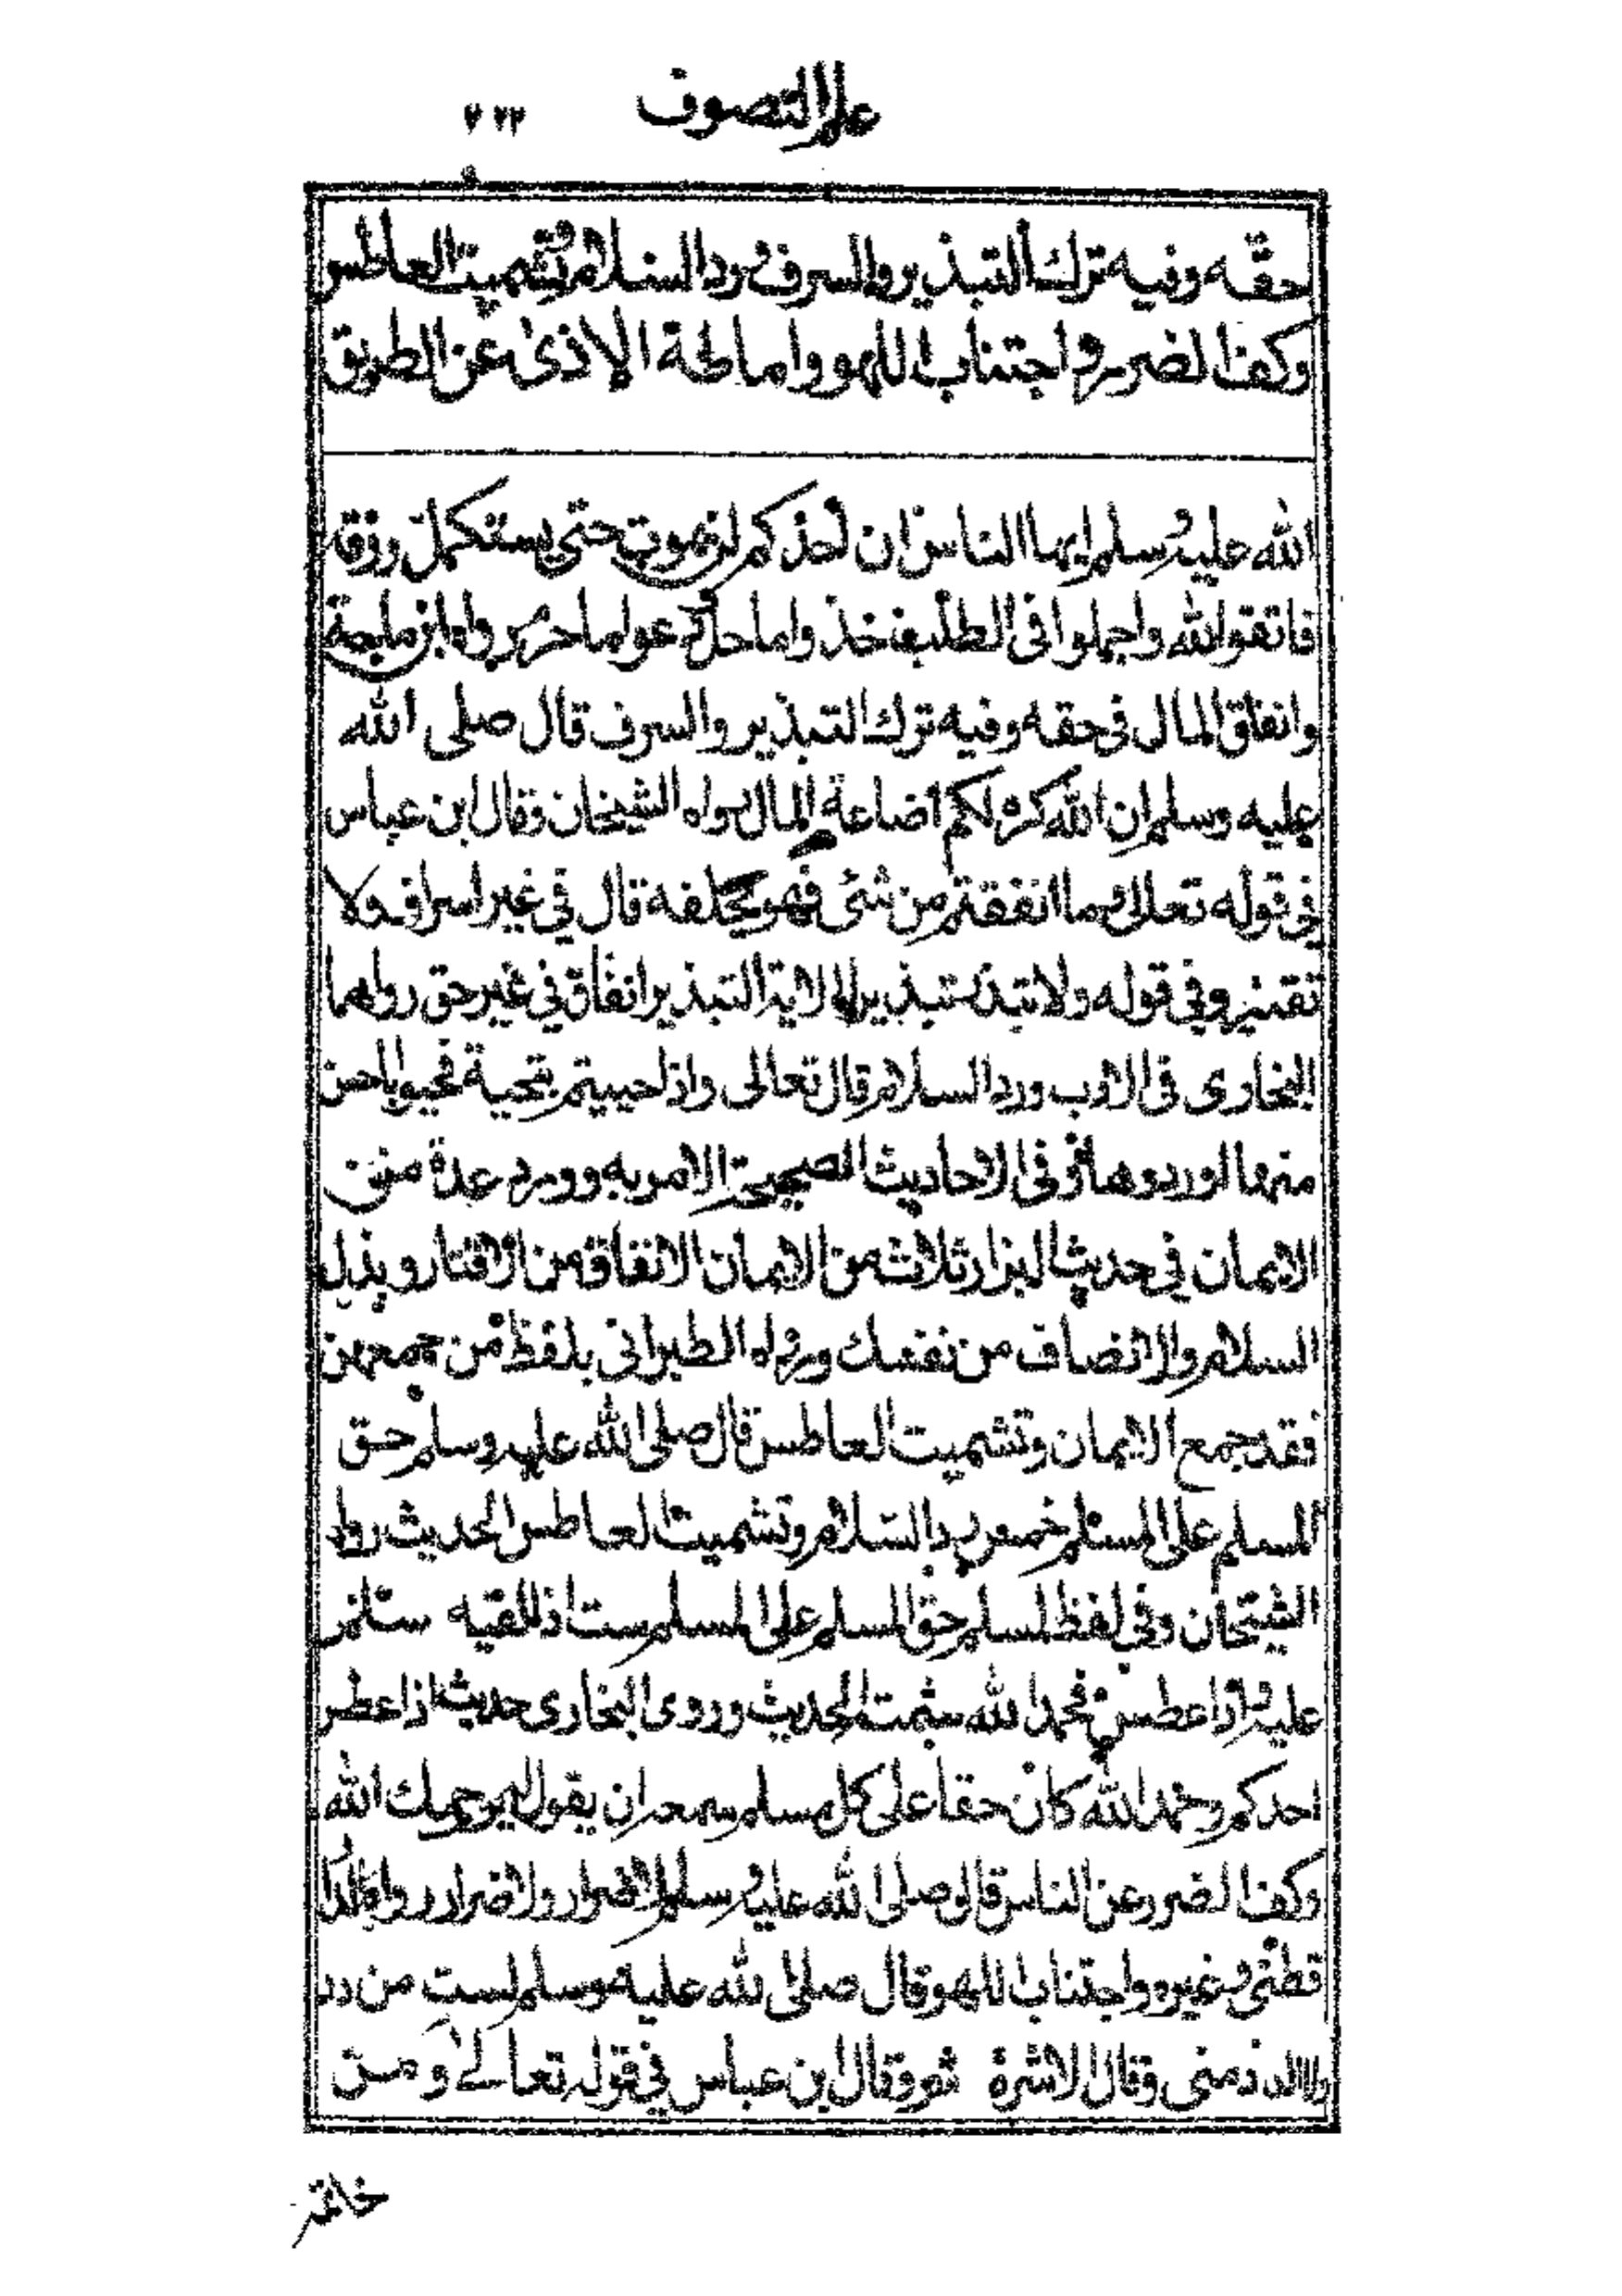 علم التصوف ٢٢٧
حقه وفيه ترك التبذير والسرف ورد السلام وتشميت العاطس
وكف الضرر واجتناب اللهو واماطة الاذى عن الطريق
الله عليه وسلم ايها الناس ان احدكم لن يموت حتى يستكمل رزقه
فاتقوا الله واجملوا فى الطلب خذ واما حل ودعوا ما حرم رواه ابن ماجة
وانفاق المال فى حقه وفيه ترك التبذير والسرف قال صلى الله
عليه وسلم ان الله كره لكم اضاعة المال رواه الشيخان وقال ابن عباس
فى قوله تعالى وما انفقتم من شئ فهو يخلفه قال فى غير اسراف ولا
تقتير وفى قوله ولا تبذر تبذيرا الاية التبذير انفاق فى غير حق رواهما
البخارى فى الادب ورد السلام قال تعالى واذا حييتم بتحية فحيوا باحسن
منها او ردوها وفى الاحاديث الصحيحة الامر به وورد عدة من
الايمان فى حديث البزار ثلاث من الايمان الانفاق من الاقتار وبذل
السلام والانصاف من نفسك ورواه الطبرانى بلفظ من جمعهن
فقد جمع الايمان وتشميت العاطس قال صلى الله عليه وسلم حق
المسلم على المسلم خمس رد السلام وتشميت العاطس الحديث رواه
الشيخان وفى لفظ لمسلم حق المسلم على المسلم ست اذا لقيه سلم
عليه واذا عطس فحمد الله شمته الحديث وروى البخارى حديث اذا عطس
احدكم وحمد الله كان حقا على كل مسلم سمعه ان يقول يرحمك الله
وكف الضرر عن الناس قال صلى الله عليه وسلم لا ضرر ولا ضرار رواه الدا
قطنى وغيره واجتناب اللهو قال صلى الله عليه وسلم لست من دد
ولا الدد منى وقال الاشرة شر وقال ابن عباس فى قوله تعالى ومن